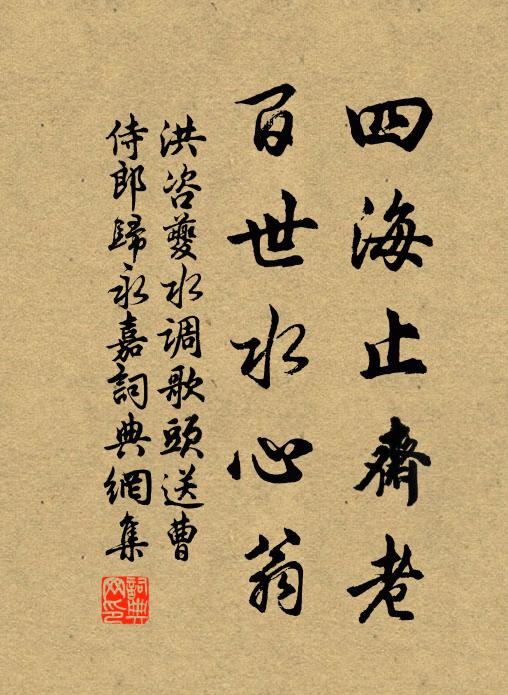 四海止齋老
百世水心翁
洪咨夔水調歌頭送曹
侍郎歸永嘉詞典網集
詞典网印